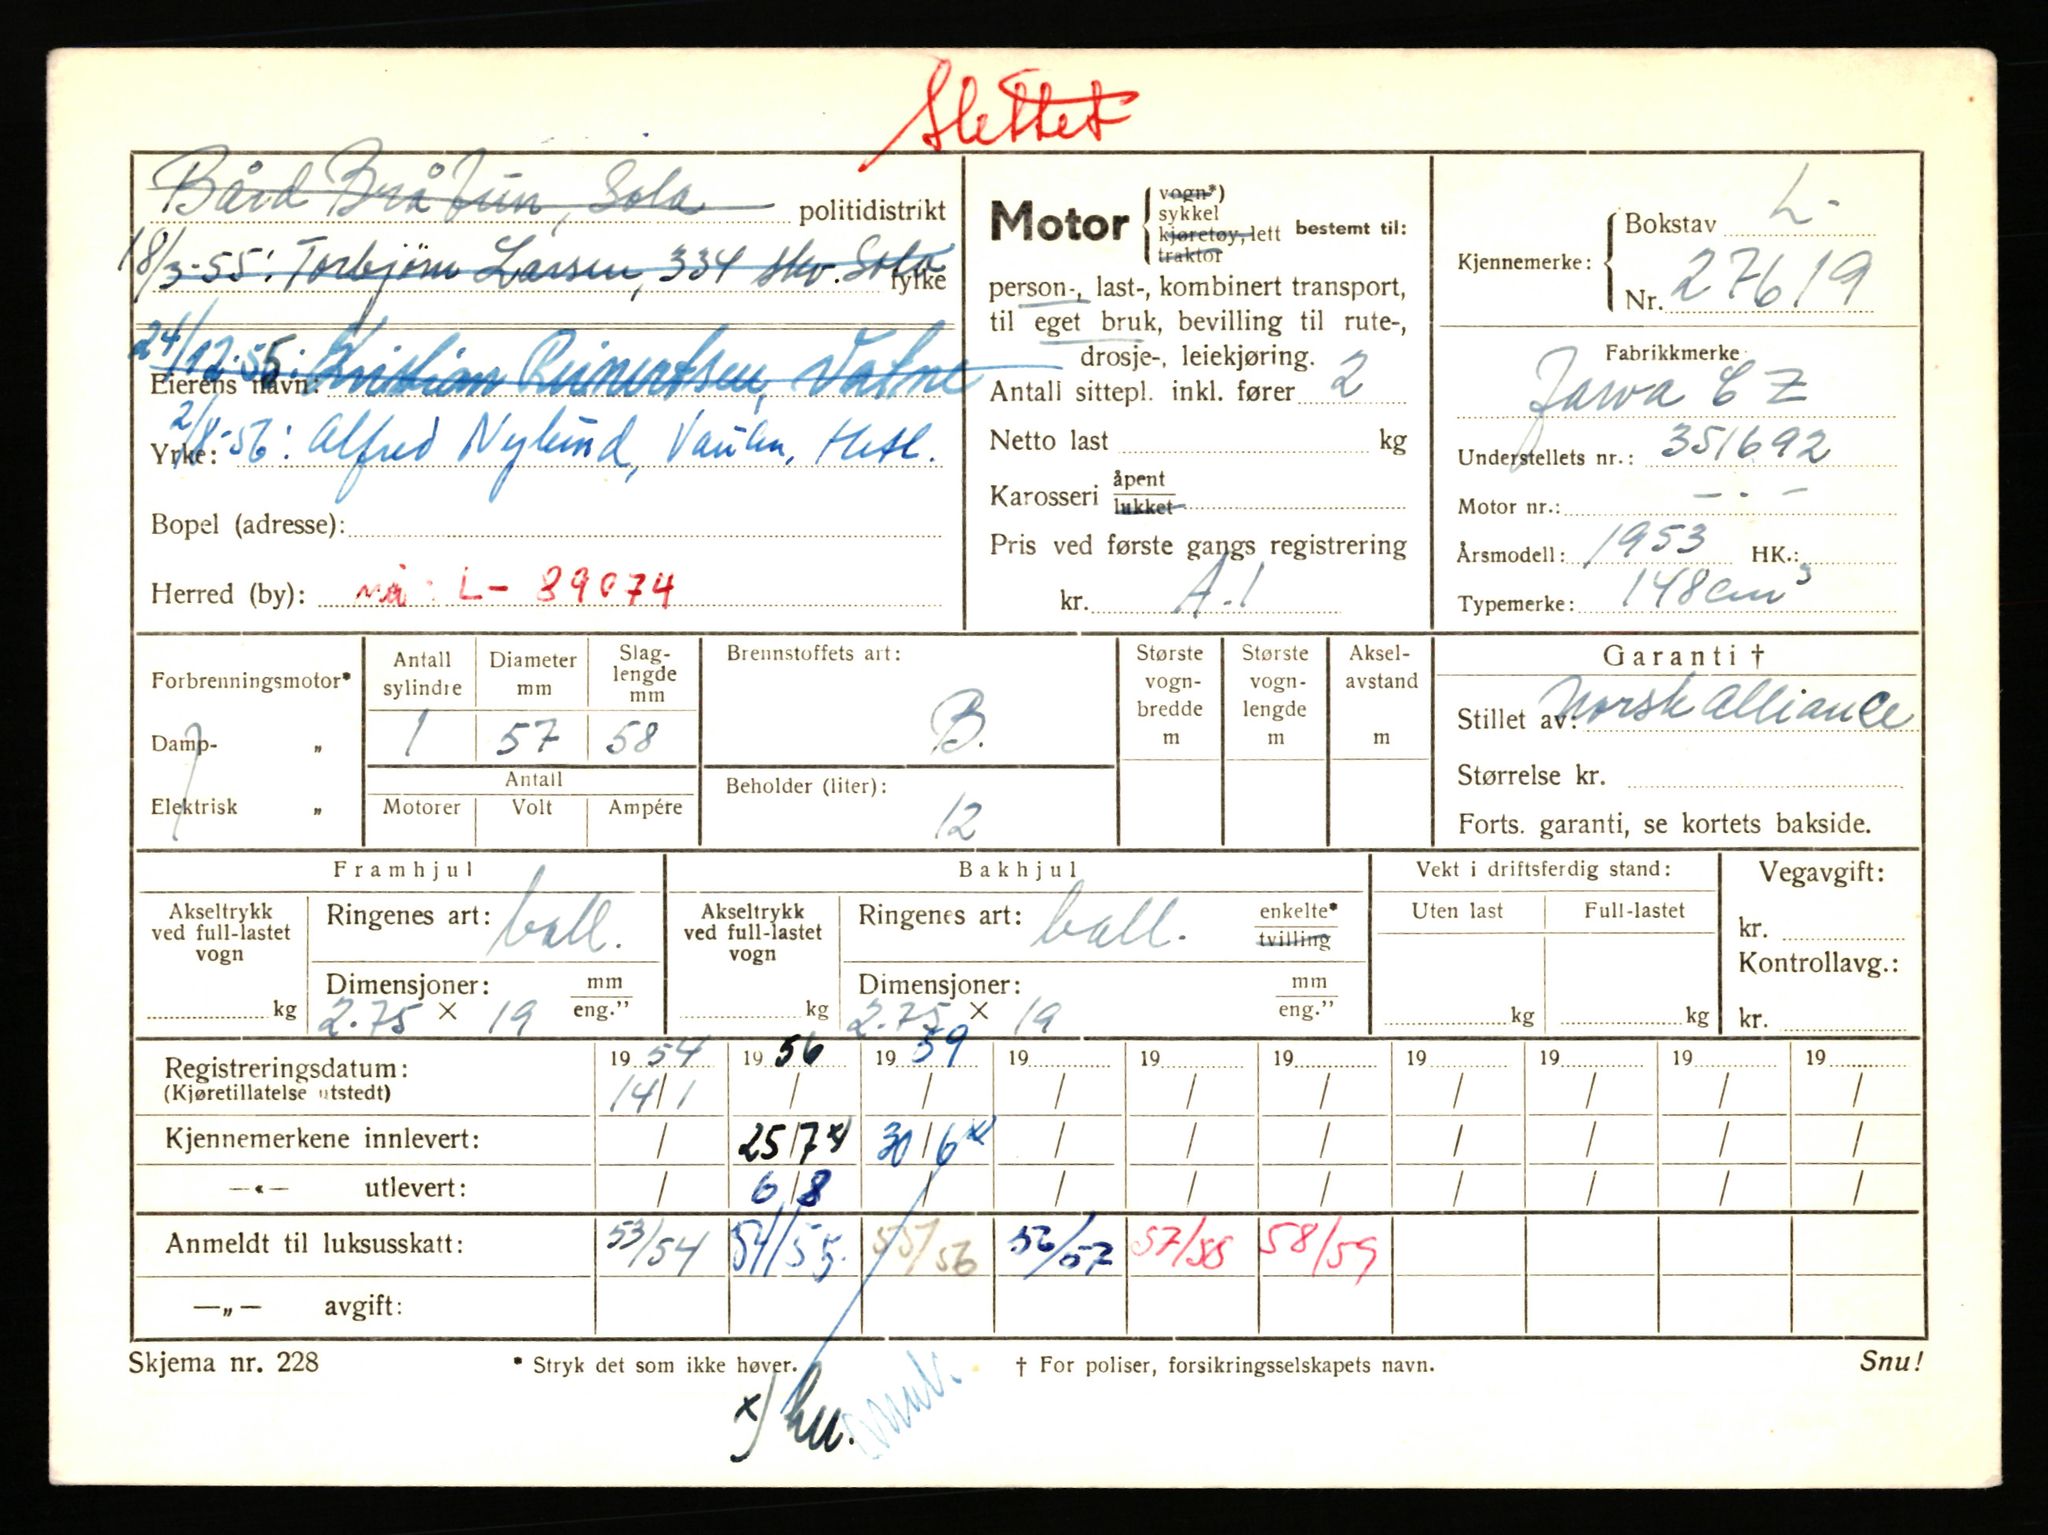 Slettet
Bård Bråtun, Sola politidistrikt
18/3-55: Torbjørn Larsen, 334 skv. Sola fylke
24/12-55: Kristian Reinertsen, Vatne
Eierens navn:
2/8-56: Alfred Nylund, Vaulen, Hetl.
Yrke:
Bopel (adresse):
Herred (by): nå: L- 89074
Motor { vogn*) sykkel kjøretøy, lett traktor bestemt til:
person-, last-, kombinert transport,
til eget bruk, bevilling til rute-,
drosje-, leiekjøring.
Antall sittepl. inkl. fører 2
Netto last kg
Karosseri åpent lukket
Pris ved første gangs registrering
kr. A.1
Kjennemerke: { Bokstav L-
Nr. 27619
Fabrikkmerke
Jawa CZ
Understellets nr.: 351692
Motor nr.: - . -
Årsmodell: 1953 HK.:
Typemerke: 148 cm³
Forbrenningsmotor*
Damp- „
Elektrisk „
Antall sylindre Diameter mm Slag-lengde mm
1 57 58
Antall
Motorer Volt Ampére
Brennstoffets art:
B.
Beholder (liter):
12
Største vogn-bredde m
Største vogn-lengde m
Aksel-avstand m
Garanti †
Stillet av: Norsk Alliance
Størrelse kr.
Forts. garanti, se kortets bakside.
Framhjul
Akseltrykk ved full-lastet vogn kg
Ringenes art: ball.
Dimensjoner: mm eng."
2.75 × 19
Bakhjul
Akseltrykk ved full-lastet vogn kg
Ringenes art: ball. enkelte* tvilling
Dimensjoner: mm eng."
2.75 × 19
Vekt i driftsferdig stand:
Uten last Full-lastet
kg kg
Vegavgift:
kr.
Kontrollavg.:
kr.
Registreringsdatum: 19 54 19 56 19 59 19 19 19 19 19 19 19
(Kjøretillatelse utstedt) 14/1 / / / / / / / / /
Kjennemerkene innlevert: / 25/7 x) 30/6 x) / / / / / / /
—«— utlevert: / 6/8 / / / / / / / /
Anmeldt til luksusskatt: 53/54 54/55. 55/56 56/57 57/58 58/59
—„— avgift:
Skjema nr. 228 * Stryk det som ikke høver. † For poliser, forsikringsselskapets navn. Snu!
x)